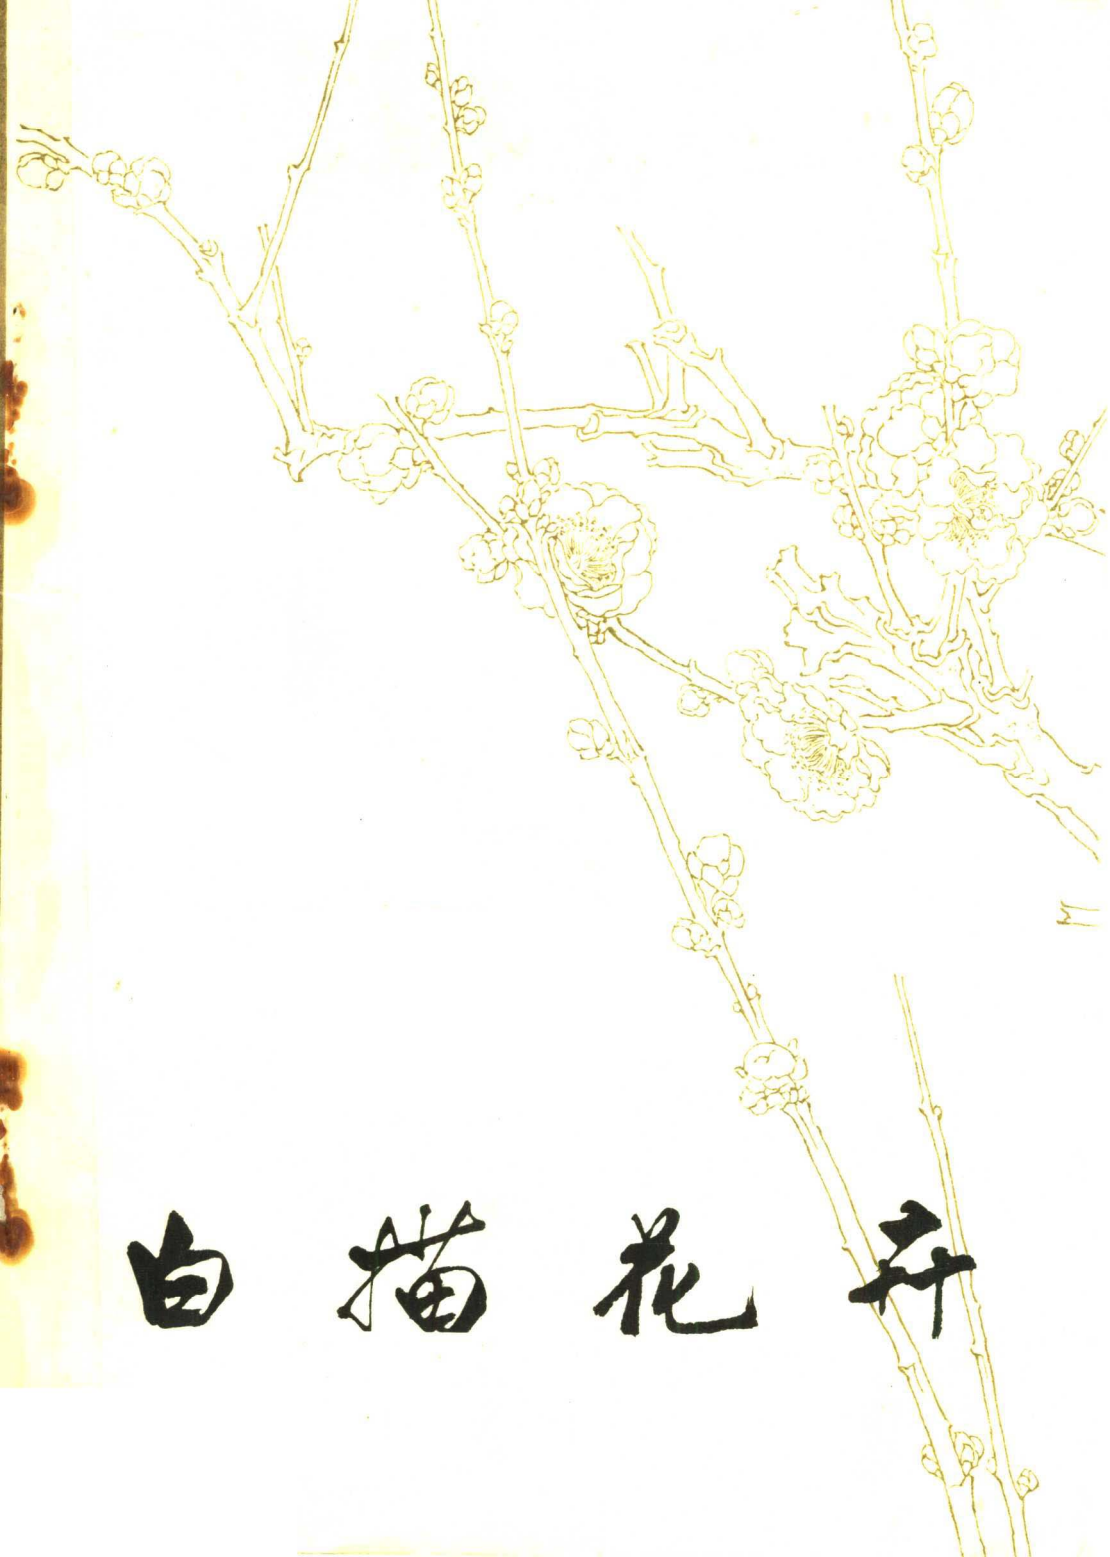 白描花卉